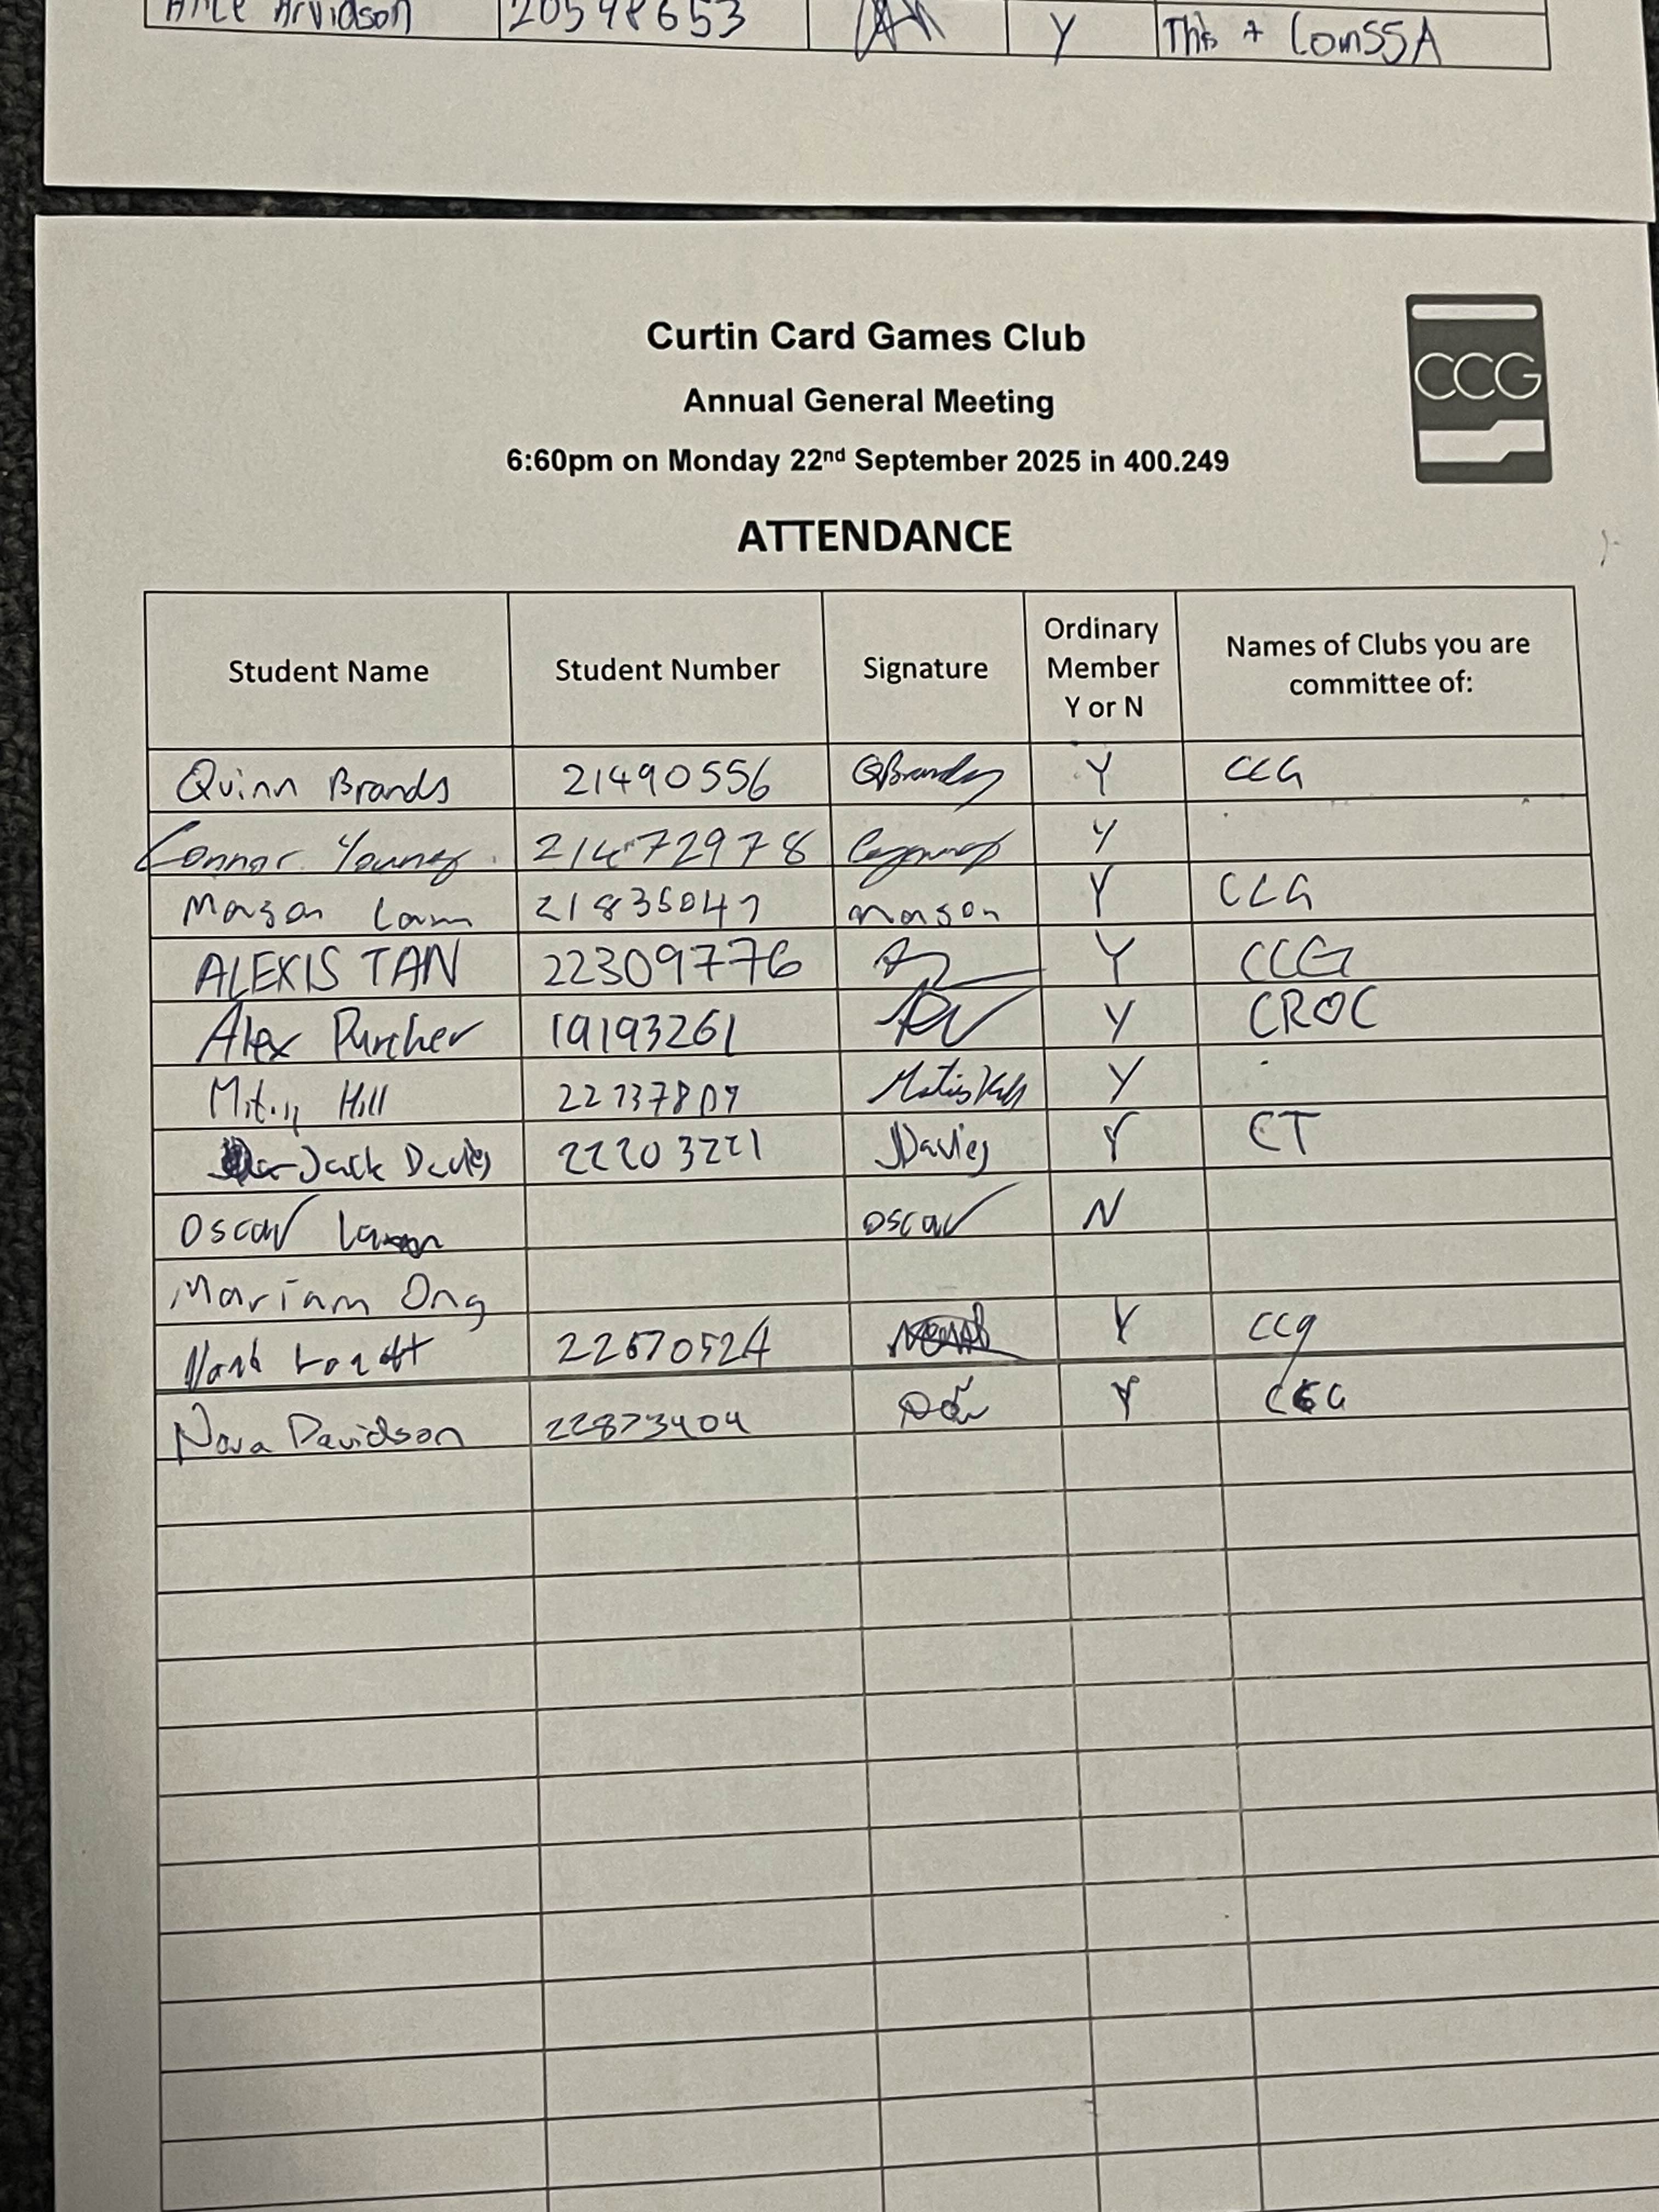 Alice Arvidson 20598653 Y This + ComSSA
Curtin Card Games Club
CCG
Annual General Meeting
6:60pm on Monday 22nd September 2025 in 400.249
ATTENDANCE
Student Name Student Number Signature Ordinary Member Y or N Names of Clubs you are committee of:
Quinn Brands 21490556 QBrands Y CCG
Connor Young 21472978 Y
Mason Lamm mason Y CCG
ALEXIS TAN 22309776 Y CCG
Alex Purcher 19193261 Y CROC
Hill Y
Jack Davies 22203221 JDavies Y CT
Oscar oscar N
Mariam Ong
Y CCg
Nova Davidson 22873404 Y CCG